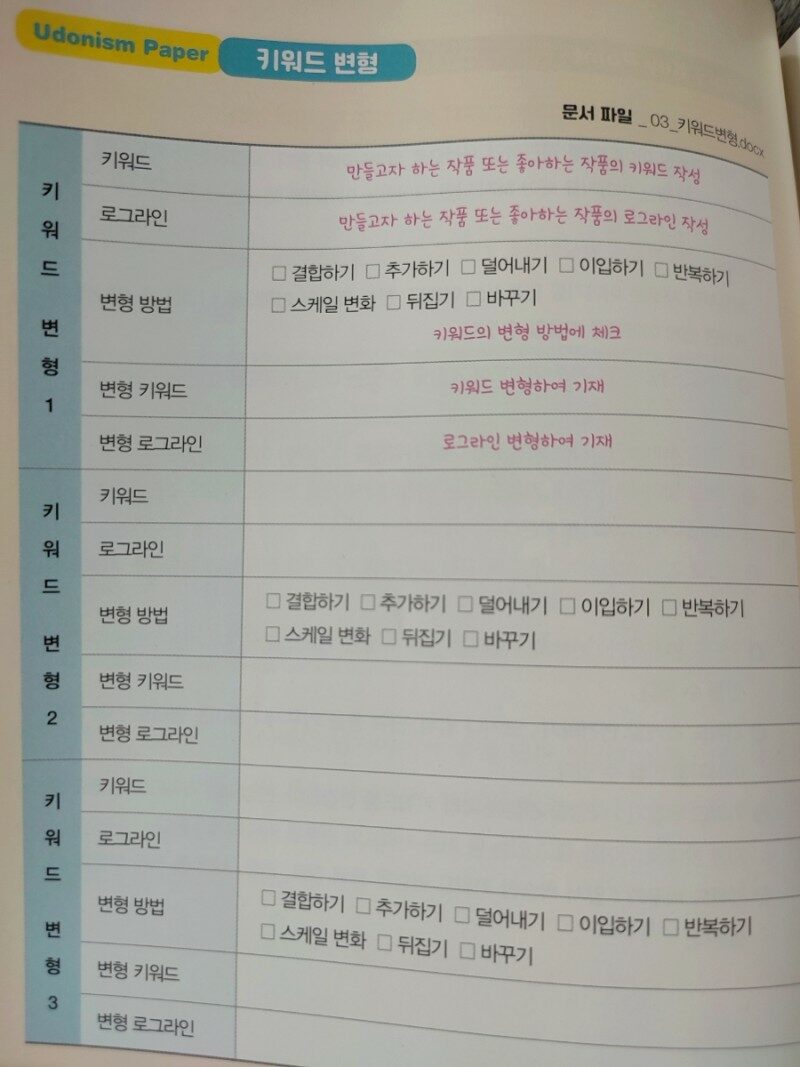 Udonism Paper 키워드 변형
문서 파일 _ 03_키워드변형.docx
키워드 변형 1
키워드 만들고자 하는 작품 또는 좋아하는 작품의 키워드 작성
로그라인 만들고자 하는 작품 또는 좋아하는 작품의 로그라인 작성
변형 방법
□ 결합하기 □ 추가하기 □ 덜어내기 □ 이입하기 □ 반복하기
□ 스케일 변화 □ 뒤집기 □ 바꾸기
키워드의 변형 방법에 체크
변형 키워드 키워드 변형하여 기재
변형 로그라인 로그라인 변형하여 기재
키워드 변형 2
키워드
로그라인
변형 방법
□ 결합하기 □ 추가하기 □ 덜어내기 □ 이입하기 □ 반복하기
□ 스케일 변화 □ 뒤집기 □ 바꾸기
변형 키워드
변형 로그라인
키워드 변형 3
키워드
로그라인
변형 방법
□ 결합하기 □ 추가하기 □ 덜어내기 □ 이입하기 □ 반복하기
□ 스케일 변화 □ 뒤집기 □ 바꾸기
변형 키워드
변형 로그라인